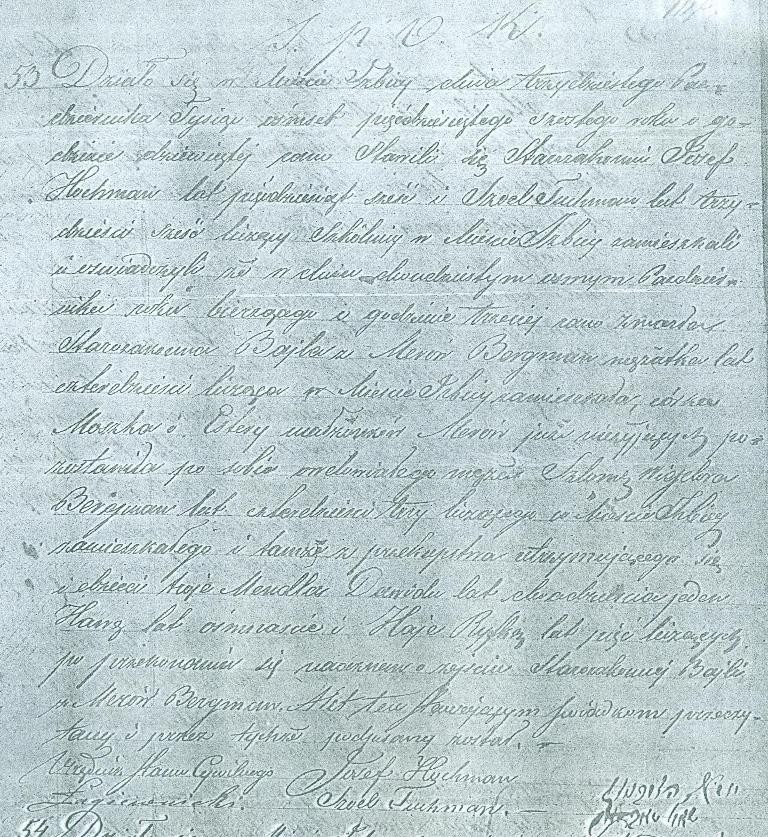 53 Działo się w Mieście Izbicy dnia trzydziestego Paz=
dziernika Tysiąc ośmset pięćdziesiątego szóstego roku o go=
dzinie dziewiątej rano Stawili się Starozakonni Jozef
Hochman lat pięćdziesiąt sześć i Szoel Fuhrman lat trzy=
dzieści sześć liczący Szkolnicy w Mieście Izbicy zamieszkali
i oświadczyli że w dniu dwudziestym osmym Pazdzier=
nika roku bieżącego o godzinie trzeciej rano zmarła
Starozakonna Bajla z Meroń Bergman mężatka lat
czterdzieści licząca w Mieście Izbicy zamieszkała, córka
Moszka i Estery małżonków Meroń już nieżyjących po=
zostawiła po sobie owdowiałego męża Szlomę
Bergman lat czterdzieści trzy liczącego w Mieście Izbicy
zamieszkałego i tamże z przekupstwa utrzymującego się
i dzieci troje Mendla Daniela lat dwadzieścia jeden
Hanę lat ośmnaście i Haję Ryfkę lat pięć liczących
po przekonaniu się naocznem o zejściu Starozakonnej Bajli
z Meroń Bergman. Akt ten stawającym świadkom przeczy=
tany i przez tychże podpisany został. —
Urzędnik Stanu Cywilnego Jozef Hochman
Szoel Fuhrman. —
54 Działo się w Mieście Izbicy